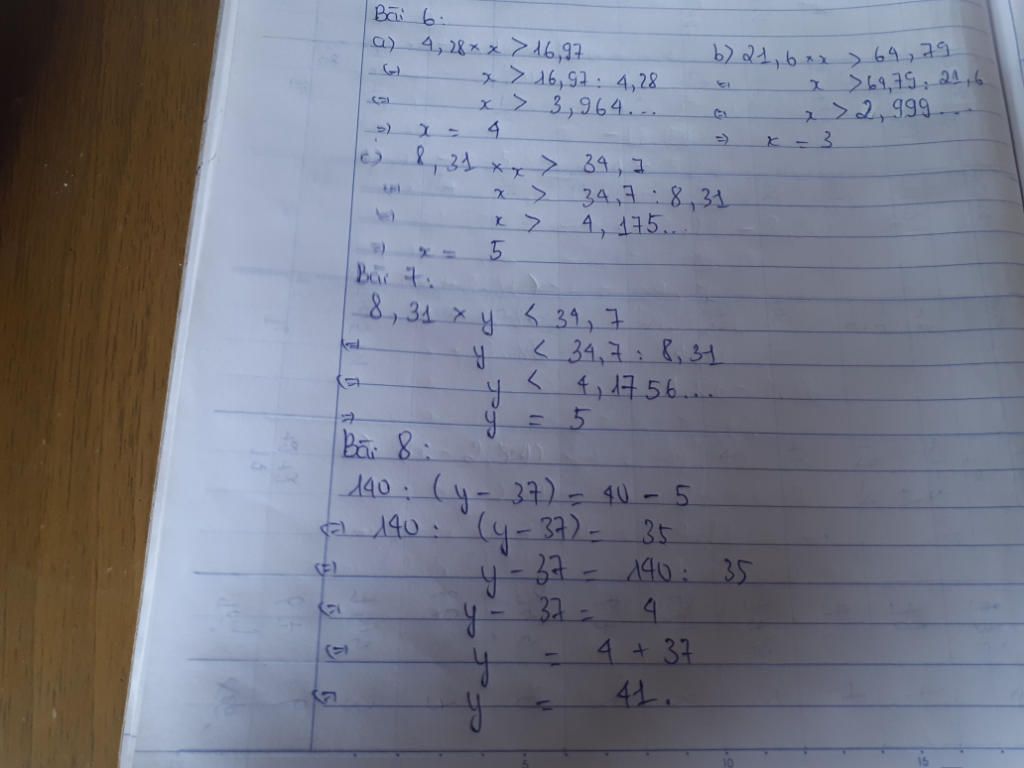 Bài 6:
a) 4,28 × x > 16,97
b) 21,6 × x > 64,79
(=) x > 16,97 : 4,28
(=) x > 64,79 : 21,6
(=) x > 3,964...
(=) x > 2,999...
=) x = 4
=) x = 3
c) 8,31 × x > 34,7
(=) x > 34,7 : 8,31
(=) x > 4,175...
=) x = 5
Bài 7:
8,31 × y < 34,7
(=) y < 34,7 : 8,31
(=) y < 4,1756...
=) y = 5
Bài 8:
140 : (y - 37) = 40 - 5
(=) 140 : (y - 37) = 35
(=) y - 37 = 140 : 35
(=) y - 37 = 4
(=) y = 4 + 37
(=) y = 41.
5
10
15